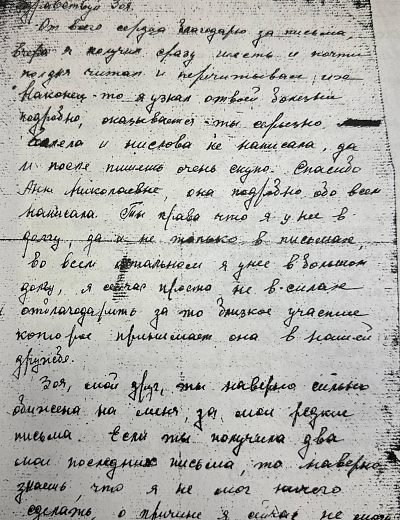 Здравствуй Зоя.
От всего сердца благодарю за письма,
вчера я получил сразу шесть и почти
полдня читал и перечитывал их
Наконец-то я узнал о твоей болезни
подробно, оказывается ты серьезно
болела и ни слова не написала, да
и после пишешь очень скупо. Спасибо
Анне Николаевне, она подробно обо всем
написала. Ты права что я у нее в
долгу, да и не только в письмах,
во всем остальном я у нее в большом
долгу, я сейчас просто не в силах
отблагодарить за то близкое участие
которое принимает она в нашей
дружбе.
Зоя, мой друг, ты наверно сильно
обижена на меня, за мои редкие
письма. Если ты получила два
мои последних письма, то наверно
знаешь, что я не мог ничего
сделать, о причине я сейчас не могу